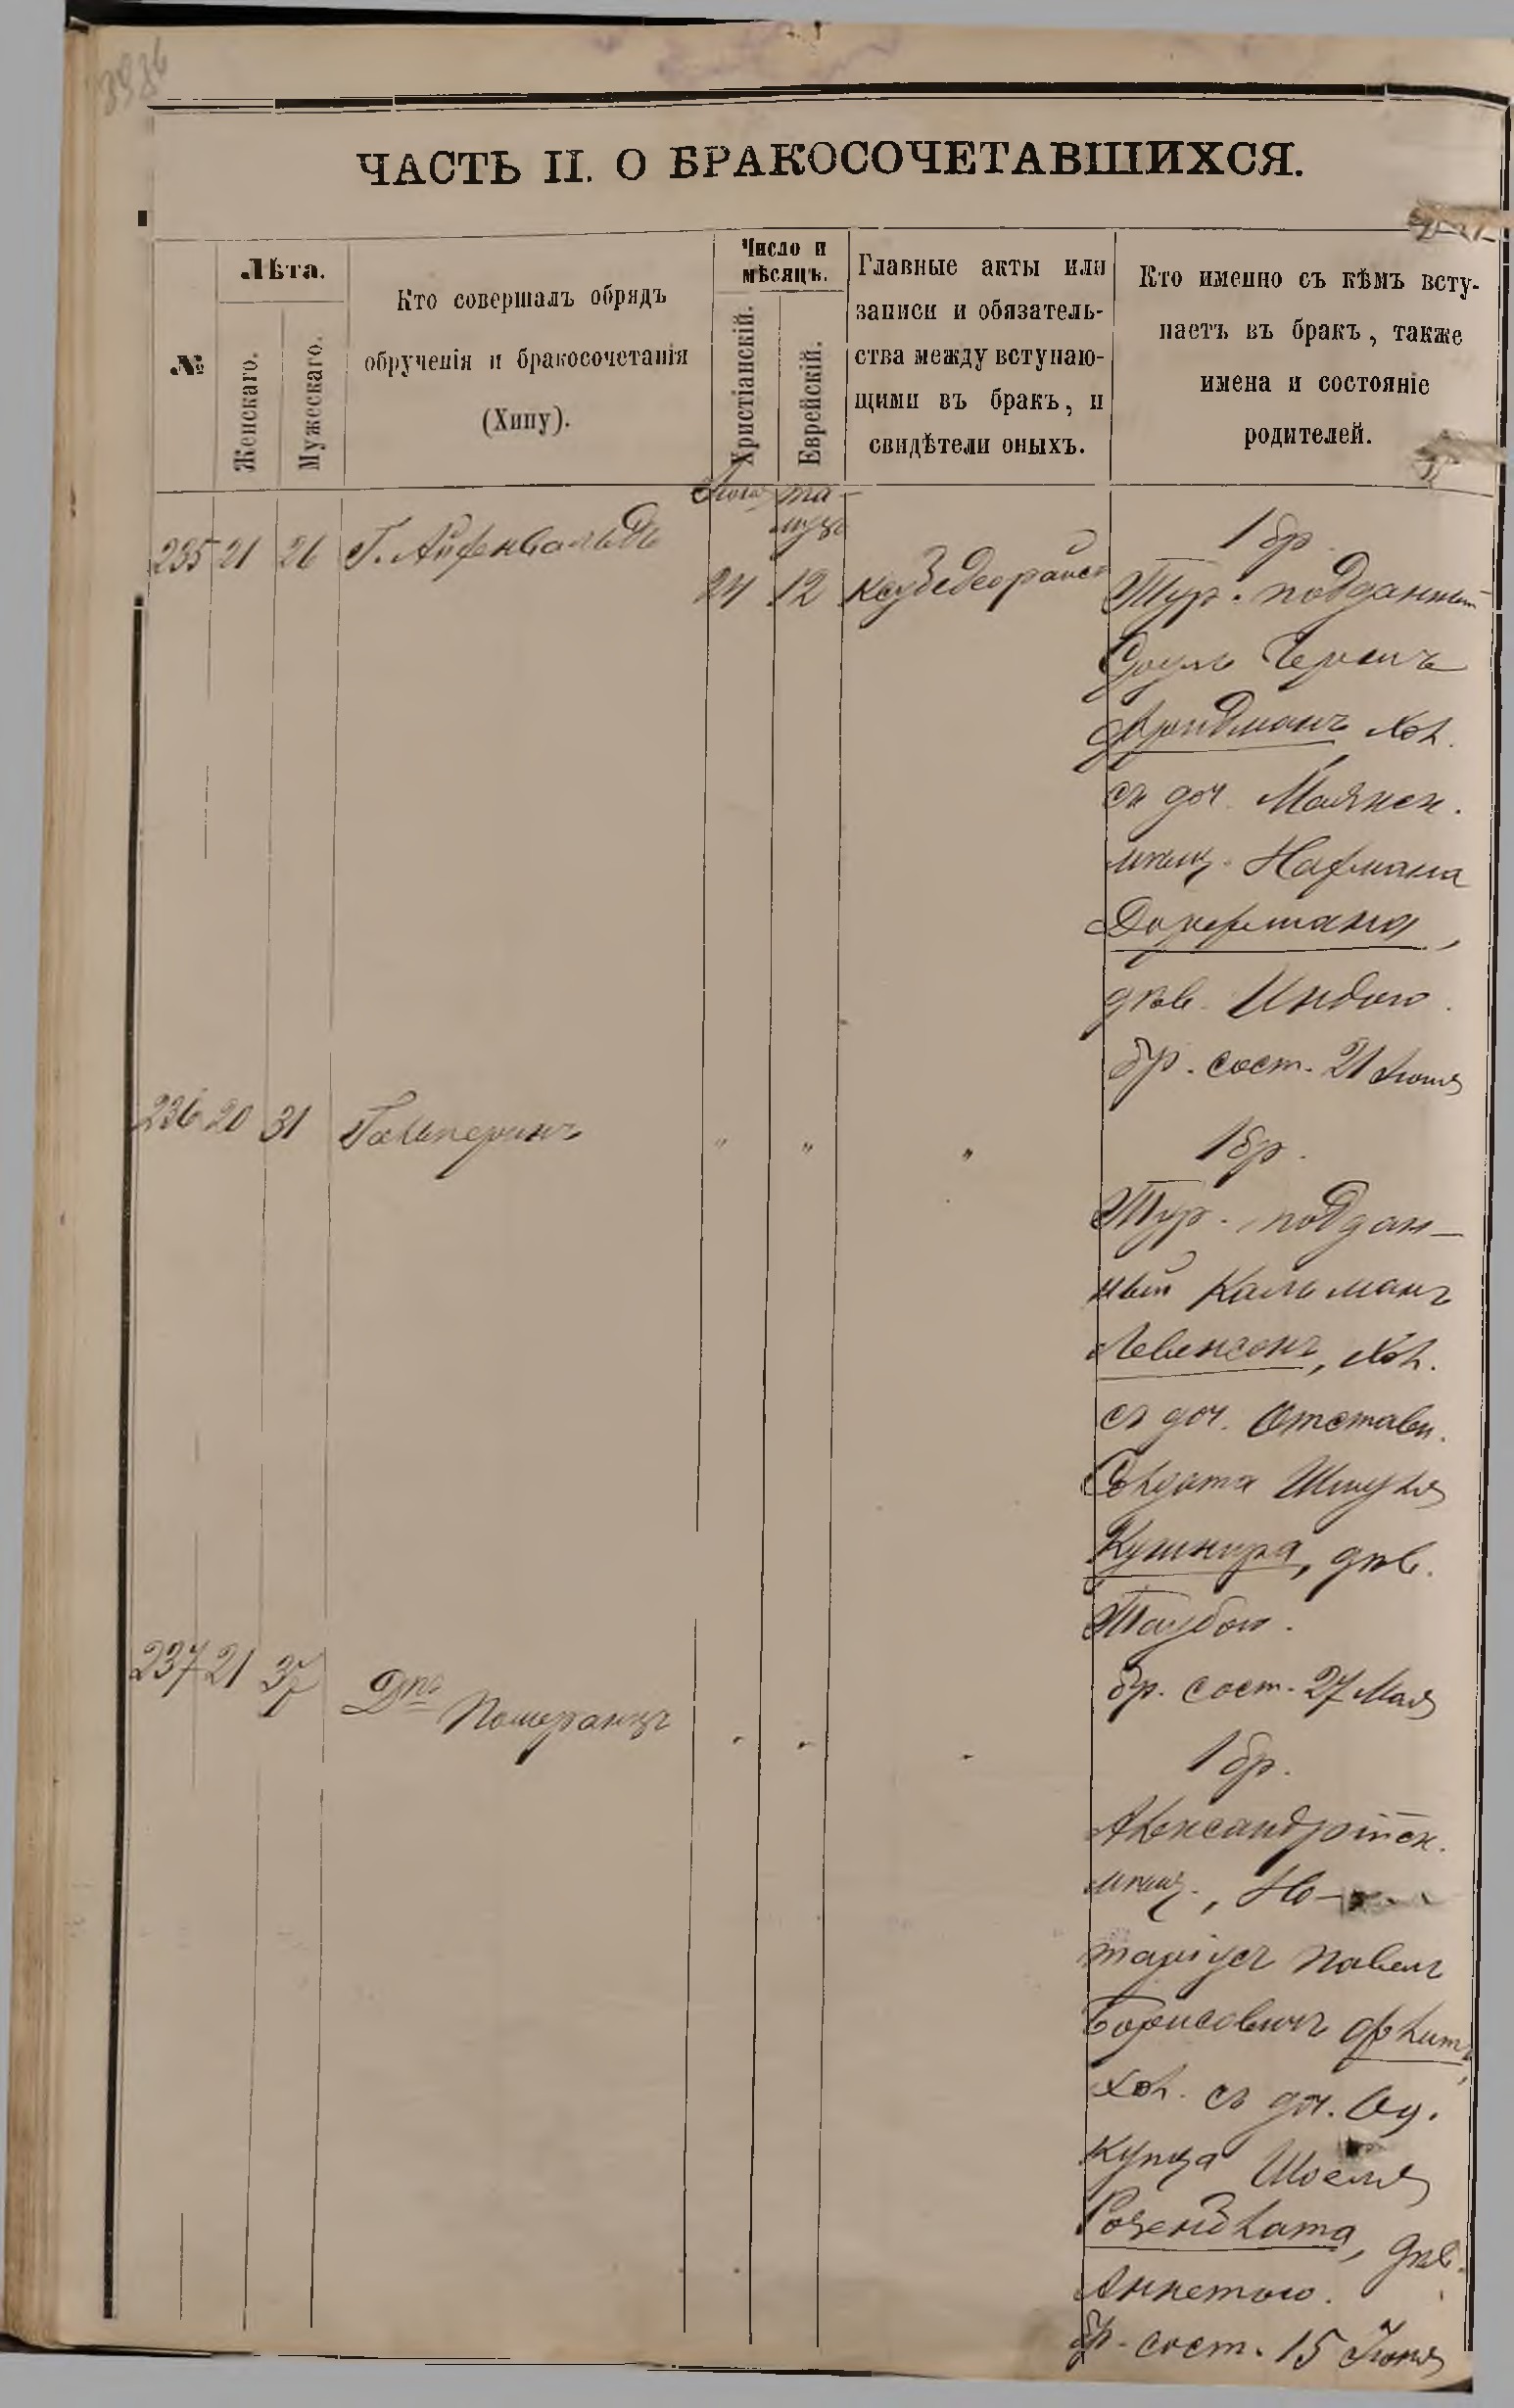 ЧАСТЬ II. О БРАКОСОЧЕТАВШИХСЯ.
№
Лѣта.
Женскаго.
Мужескаго.
Кто совершалъ обрядъ
обрученія и бракосочетанія
(Хипу).
Число и
мѣсяцъ.
Христіанскій.
Еврейскій.
Главные акты или
записи и обязатель-
ства между вступаю-
щими въ бракъ, и
свидѣтели оныхъ.
Кто именно съ кѣмъ всту-
паетъ въ бракъ, также
имена и состояніе
родителей.
Іюня
та-
муза
235 21 26
24 12
1 бр.
Тур. подданный
Фридманъ, хол.
съ доч. Маякск.
мѣщ. Нахмана
Дорфмана,
дѣв. Индою.
бр. сост. 21 Іюня
236 20 31 Гальперинъ " " "
1 бр.
Тур. поддан-
ный Кальманъ
Левенсонъ, хол.
съ доч. Отставн.
Солдата Шмуля
Кушнира, дѣв.
Таубою.
бр. сост. 27 Мая
237 21 37 Дръ Померанцъ " " "
1 бр.
Александрійск.
мѣщ., Но-
таріусъ Павелъ
Борисовичъ Флитъ,
хол. съ доч. Од.
купца Шоеля
Розенблата, дѣв.
Аннетою.
бр. сост. 15 Іюня